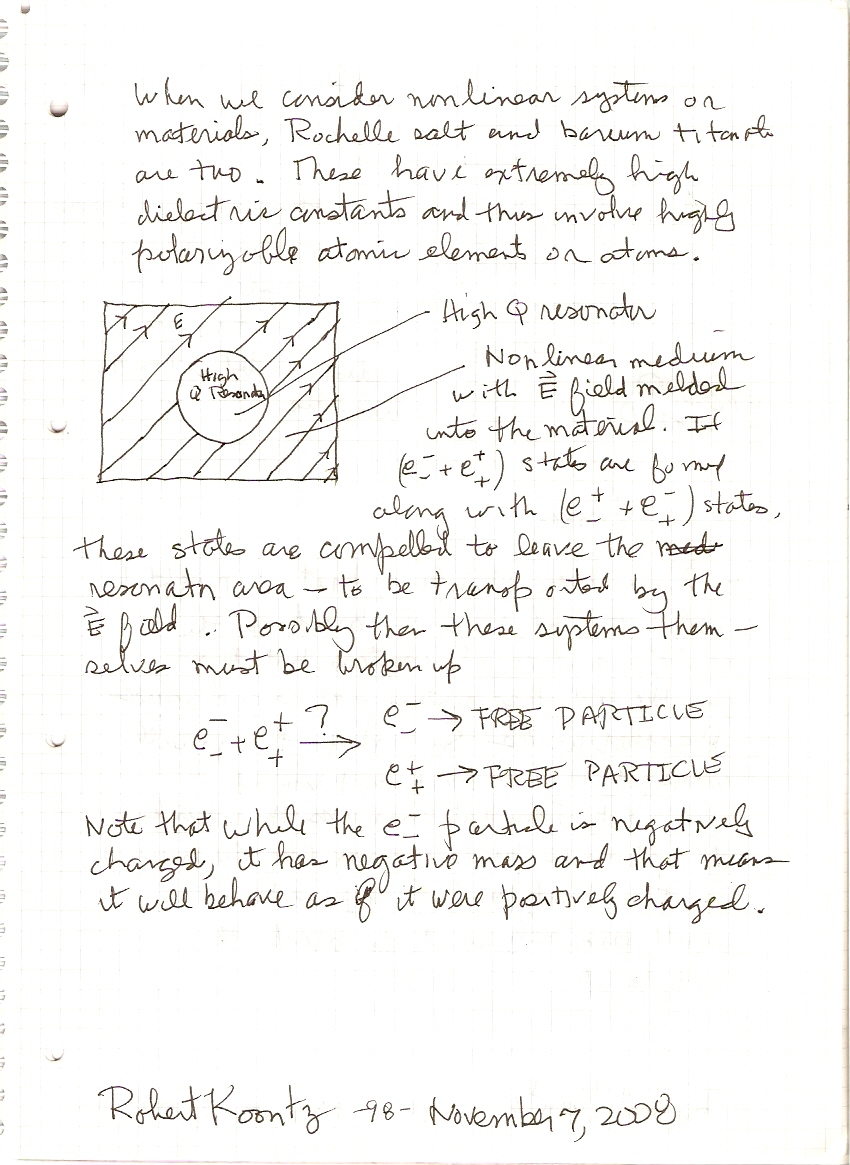 When we consider nonlinear systems or
materials, Rochelle salt and barium titanate
are two. These have extremely high
dielectric constants and thus involve highly
polarizable atomic elements or atoms.
E
High
Q Resonator
High Q resonator
Nonlinear medium
with E⃗ field melded
into the material. If
(e₋⁻ + e₊⁺) states are formed
along with (e₋⁺ + e₊⁻) states,
these states are compelled to leave the
resonator area – to be transported by the
E⃗ field. Possibly then these systems them –
selves must be broken up
e₋⁻ + e₊⁺ ?→ e₋⁻ → FREE PARTICLE
e₊⁺ → FREE PARTICLE
Note that while the e₋⁻ particle is negatively
charged, it has negative mass and that means
it will behave as if it were positively charged.
Robert Koontz -98- November 7, 2008